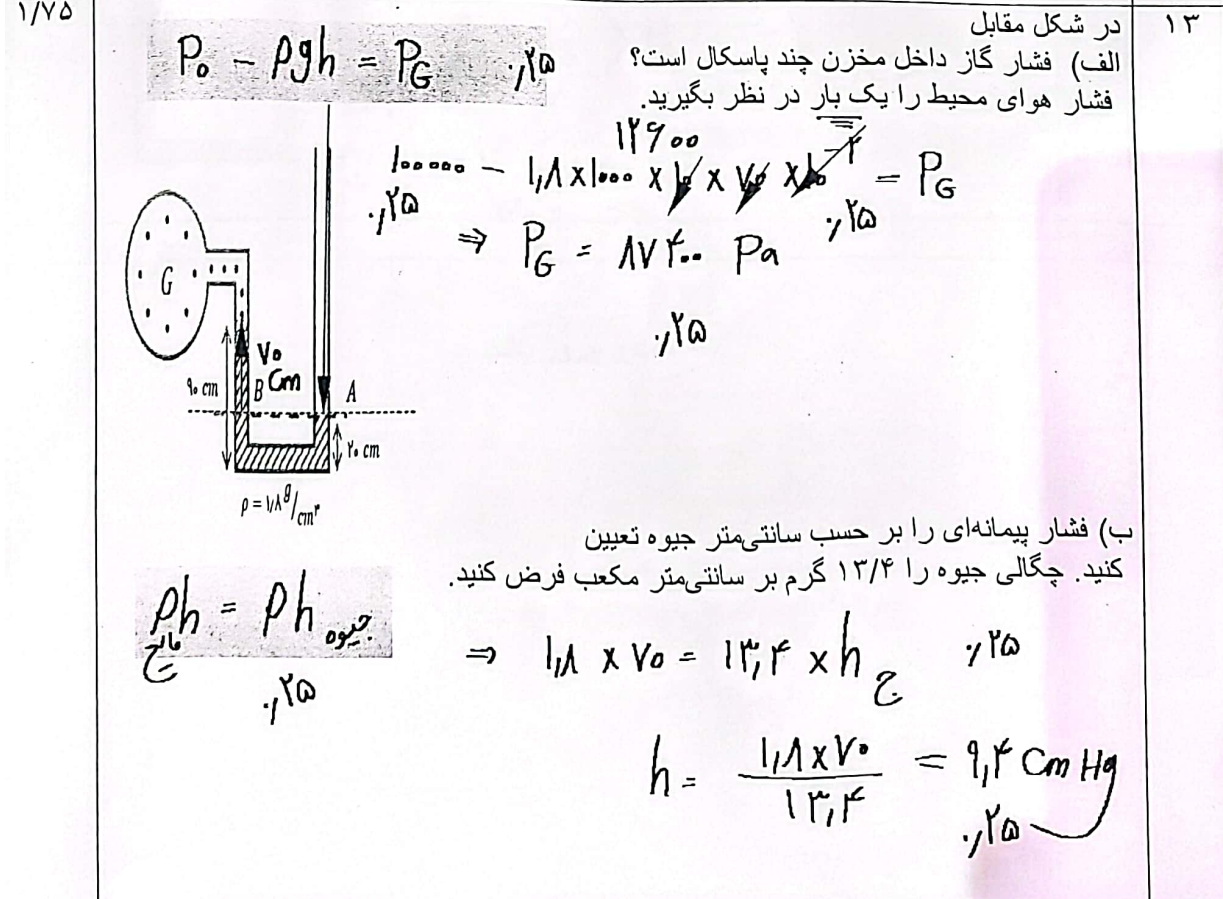 ۱/۷۵
۱۳
در شکل مقابل
الف) فشار گاز داخل مخزن چند پاسکال است؟
فشار هوای محیط را یک بار در نظر بگیرید.
P₀ − ρgh = P_G ۰٫۲۵
۱۲۶۰۰
۱۰۰۰۰۰ − ۱٫۸ × ۱۰۰۰ × ۱۰ × ۷۰ × ۱۰⁻۲ = P_G
۰٫۲۵ ۰٫۲۵
⇒ P_G = ۸۷۴۰۰ Pa
۰٫۲۵
G
۷۰ cm
۹۰ cm B A
۲۰ cm
ρ = ۱/۸ g/cm³
ب) فشار پیمانه‌ای را بر حسب سانتی‌متر جیوه تعیین
کنید. چگالی جیوه را ۱۳/۴ گرم بر سانتی‌متر مکعب فرض کنید.
ρh مایع = ρh جیوه
۰٫۲۵
⇒ ۱٫۸ × ۷۰ = ۱۳٫۴ × h ج ۰٫۲۵
h = ۱٫۸ × ۷۰ / ۱۳٫۴ = ۹٫۴ Cm Hg
۰٫۲۵